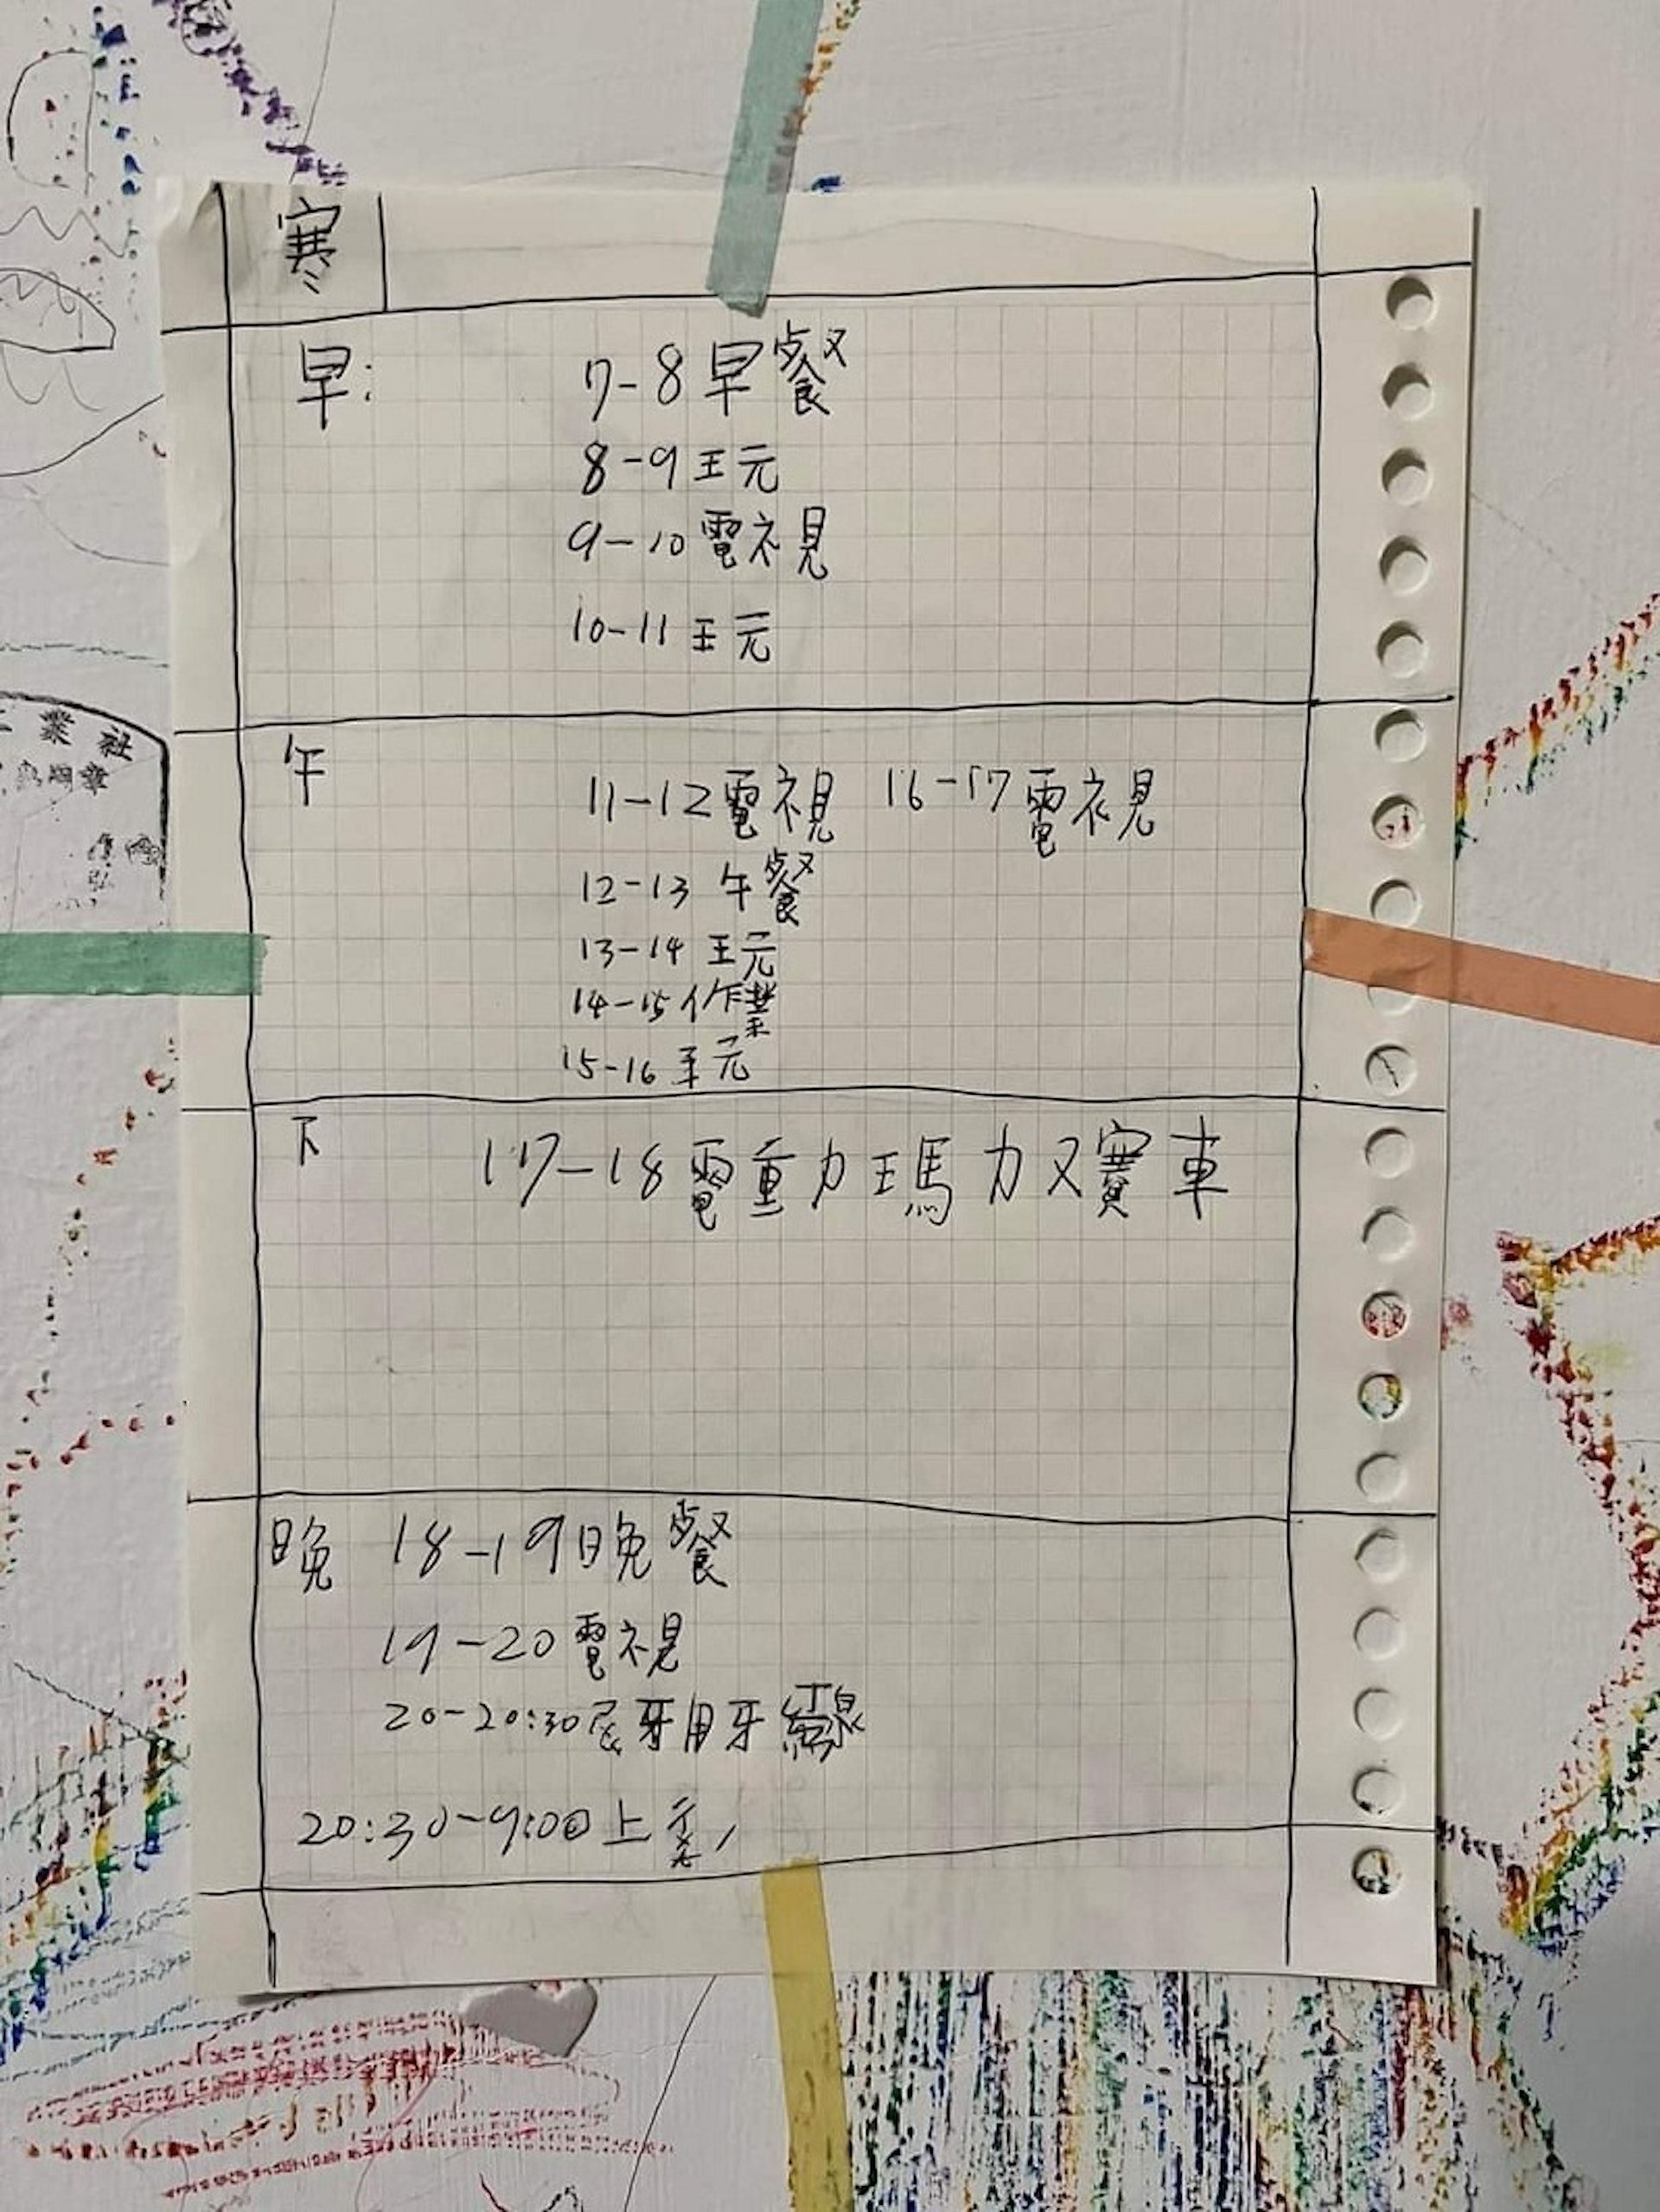 寒
早:
7-8早餐
8-9玩
9-10電視
10-11玩
午
11-12電視 16-17電視
12-13 午餐
13-14 玩
14-15作業
15-16玩
下
17-18電動瑪力又賽車
晚 18-19晚餐
19-20電視
20-20:30 牙用牙線
20:30-9:00上
業社